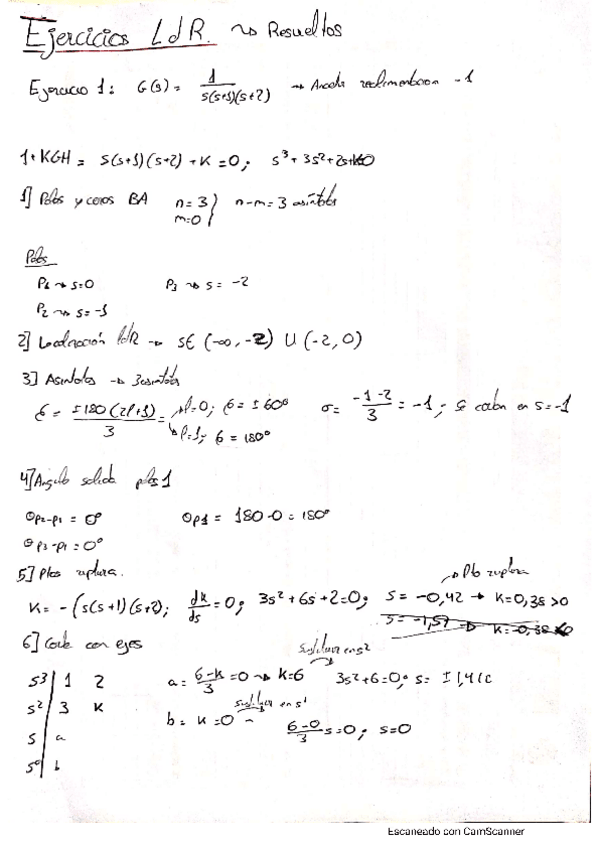 Ejercicios LdR. ~> Resueltos
Ejercicio 1: G(s) = 1 / s(s+1)(s+2) → realimentacion -1
1+KGH = s(s+1)(s+2) + K = 0; s³ + 3s² + 2s + K=0
1] Polos y ceros BA n=3 } n-m = 3 asíntotas
m=0
Polos
P1 ~> s=0 P3 ~> s = -2
P2 ~> s = -1
2] Localización LdR → s∈ (-∞, -2) ∪ (-2, 0)
3] Asíntotas → 3 asíntotas
σ = (-1-2)/3 = -1; se cortan en s=-1
= ±180(2l+1)/3 = l=0; 6 = ±60°
l=1; 6 = 180°
4] Angulo salida polos 1
θp2-p1 = 0° θp1 = 180-0 = 180°
θp3-p1 = 0°
5] Ptos ruptura. → Pto ruptura
K = -(s(s+1)(s+2); dk/ds = 0; 3s² + 6s + 2 = 0; s = -0,42 → K=0,38 >0
s = -1,57 → K=-0,38 <0
6] Corte con ejes
Sustituir en s²
s³ | 1 2 a = (6-k)/3 = 0 ~> k=6 3s²+6=0; s = ±1,41i
s² | 3 K sustituir en s¹
s | a b = K = 0 → (6-0)/3 s = 0; s=0
s⁰ | b
Escaneado con CamScanner